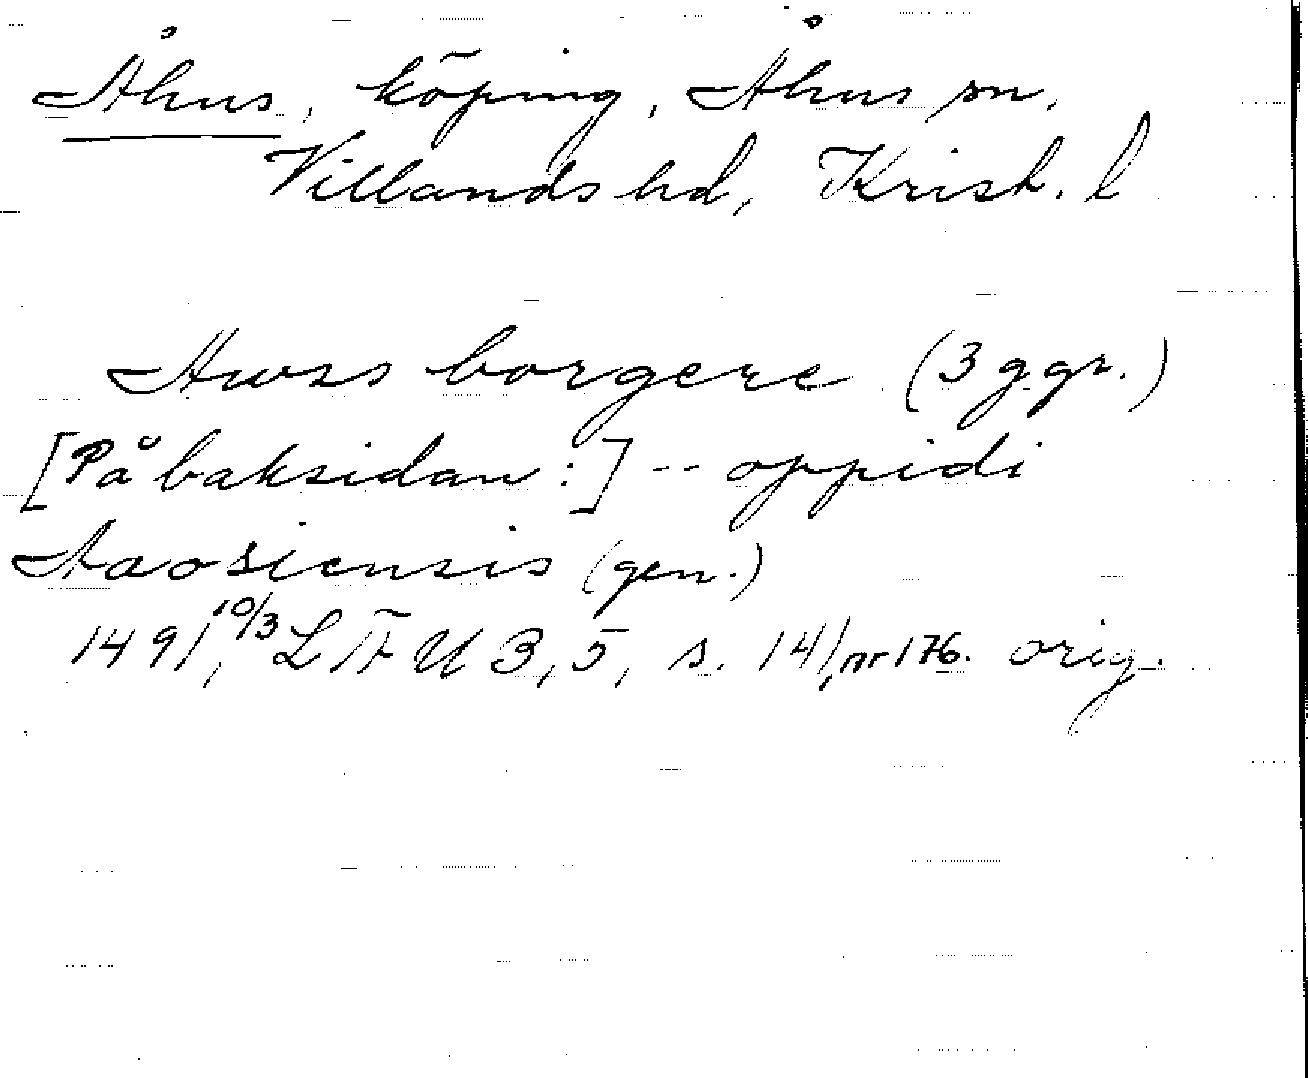 Åhus, köping, Åhus sn,
Villands hd, Krist. l
Awss borgere (3 ggr.)
[På baksidan:] -- oppidi
Aaosiensis (gen.)
1491, 10/3 LÄU 3, 5, s. 141, nr 176. orig.